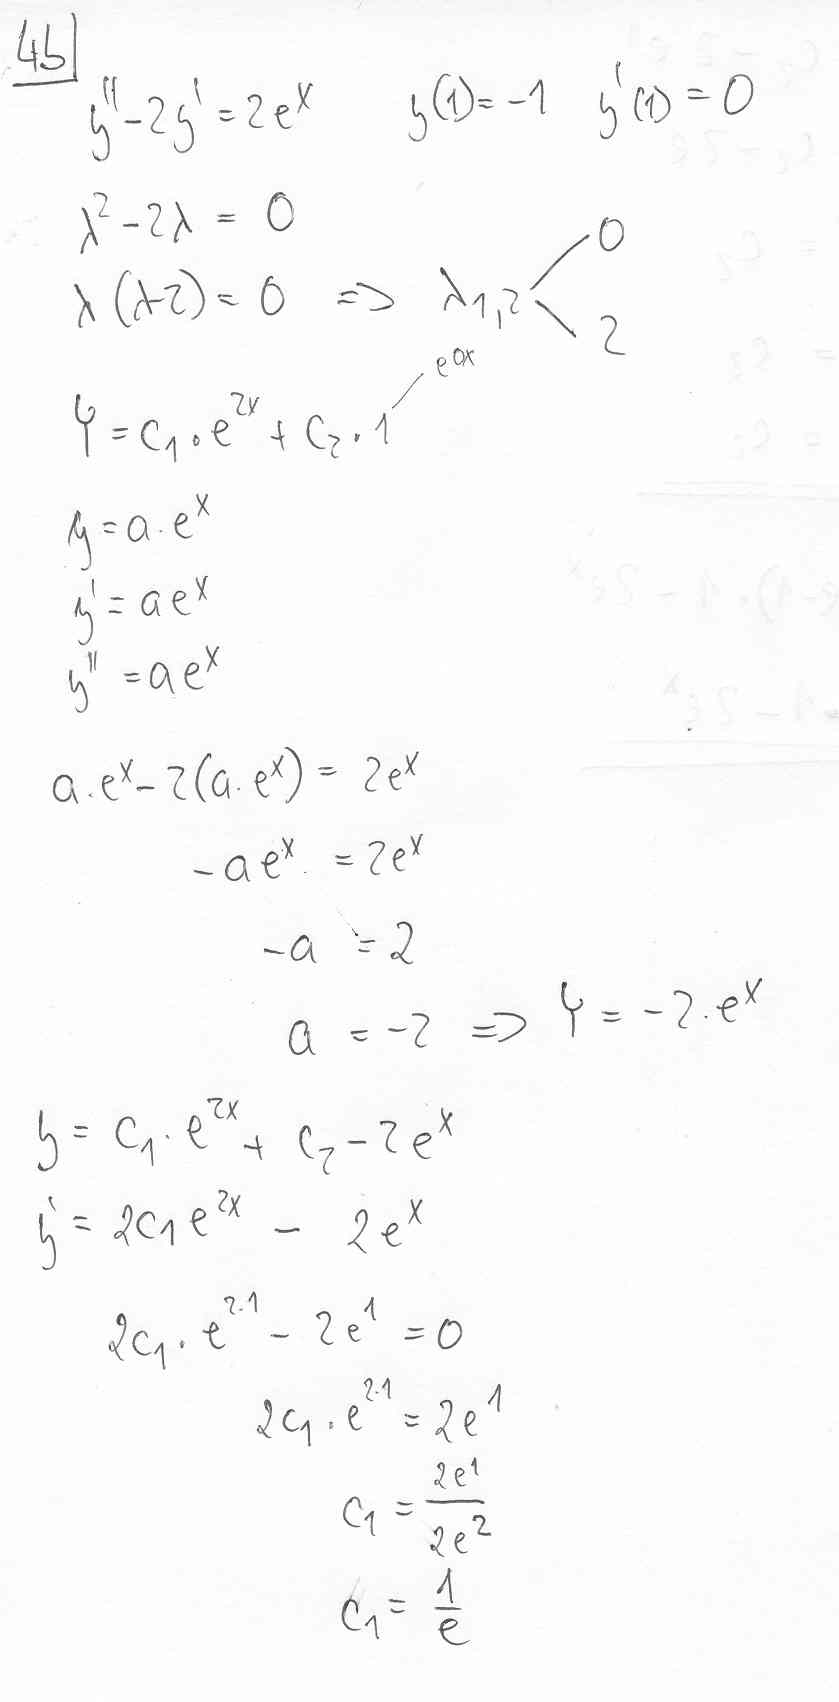 4b
y'' - 2y' = 2e^x   y(1) = -1   y'(1) = 0
λ^2 - 2λ = 0
λ(λ-2) = 0 => λ1,2 0 2
e^0x
Y = c1 · e^2x + c2 · 1
y = a · e^x
y' = ae^x
y'' = ae^x
a · e^x - 2(a · e^x) = 2e^x
-ae^x = 2e^x
-a = 2
a = -2 => Y = -2 · e^x
y = c1 · e^2x + c2 - 2e^x
y' = 2c1e^2x - 2e^x
2c1 · e^2·1 - 2e^1 = 0
2c1 · e^2·1 = 2e^1
c1 = 2e^1 / 2e^2
c1 = 1/e